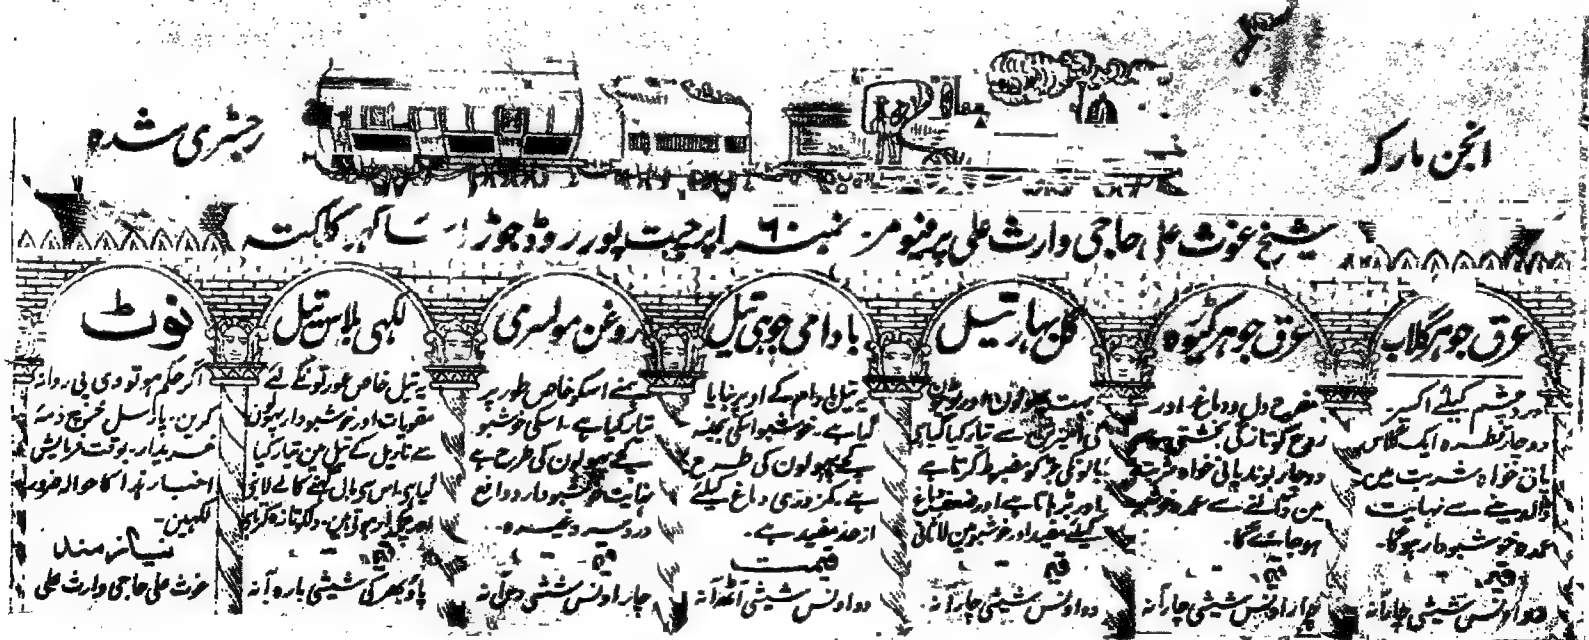 انجن مارکہ
رجسٹری شدہ
شیخ غوث علی حاجی وارث علی پرفیومرز نمبر ۶۰ اپرچیت پور روڈ جوڑا ساگہر کلکتہ
عرق جوہر گلاب
دردِ چشم کیلئے اکسیر
دو چار قطرہ ایک گلاس
پانی خواہ شربت میں
ڈالدینے سے نہایت
عمدہ خوشبودار ہوگا۔
قیمت
دو اونس شیشی چار آنہ
عرق جوہر کیوڑہ
مفرح دل و دماغ۔ اور
روح کو تازگی بخشتی
دو چار بوند پانی خواہ شربت
مین ڈالنے سے عمدہ خوشبو
ہو جائے گا۔
قیمت
چار اونس شیشی چار آنہ
گل بہار تیل
بہت پھولون اور
سے تیار کیا گیا ہے
بالونکی جڑ کو مضبوط کرتا ہے
اور بڑہاتا ہے اور ضعف دماغ
کیلئے مفید اور خوشبو مین لاثانی
قیمت
دو اونس شیشی چار آنہ۔
بادامی چوہی تیل
یہ تیل بادام کے اوپر بنایا
گیا ہے۔ خوشبو اسکی بعینہ
کے پھولون کی طرح
ہے۔ کمزوری دماغ کیلئے
از حد مفید ہے۔
قیمت
دو اونس شیشی آٹھ آنہ
روغن مولسری
ہمنے اسکو خاص طور پر
تیار کیا ہے۔ اسکی خوشبو
کے پھولون کی طرح ہے
نہایت خوشبودار و دافع
درد سر وغیرہ۔
قیمت
چار اونس شیشی دس آنہ
لکہی بلاس تیل
یہ تیل خاص عورتونکے لئے
مقویات اور خوشبودار پہولون
سے ناریل کے تیل مین تیار کیا
گیا ہے اس سے بال گہنے کالے لانبے
اور چمکدار ہوتے ہین۔ دلکو تازہ کرتا ہے
قیمت
پاؤ بھر کی شیشی بارہ آنہ
نوٹ
اگر حکم ہو تو وی پی روانہ
کرین۔ پارسل خرچ ذمہ
خریدار۔ بوقت فرمایش
اخبار ہذا کا حوالہ ضرور
لکہین۔
نیازمند
غوث علی حاجی وارث علی